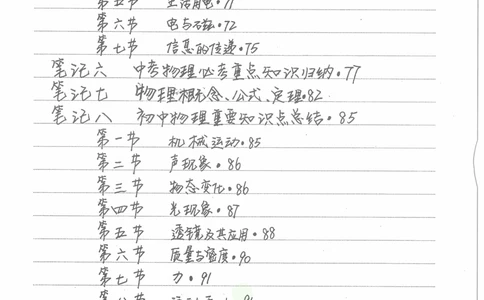 第五节 生活用电·71
第六节 电与磁·72
第七节 信息的传递·75
笔记六 中考物理必考重点知识归纳·77
笔记七 物理概念、公式、定理·82
笔记八 初中物理重要知识点总结·85
第一节 机械运动·85
第二节 声现象·86
第三节 物态变化·86
第四节 光现象·87
第五节 透镜及其应用·88
第六节 质量与密度·90
第七节 力·91
第八节